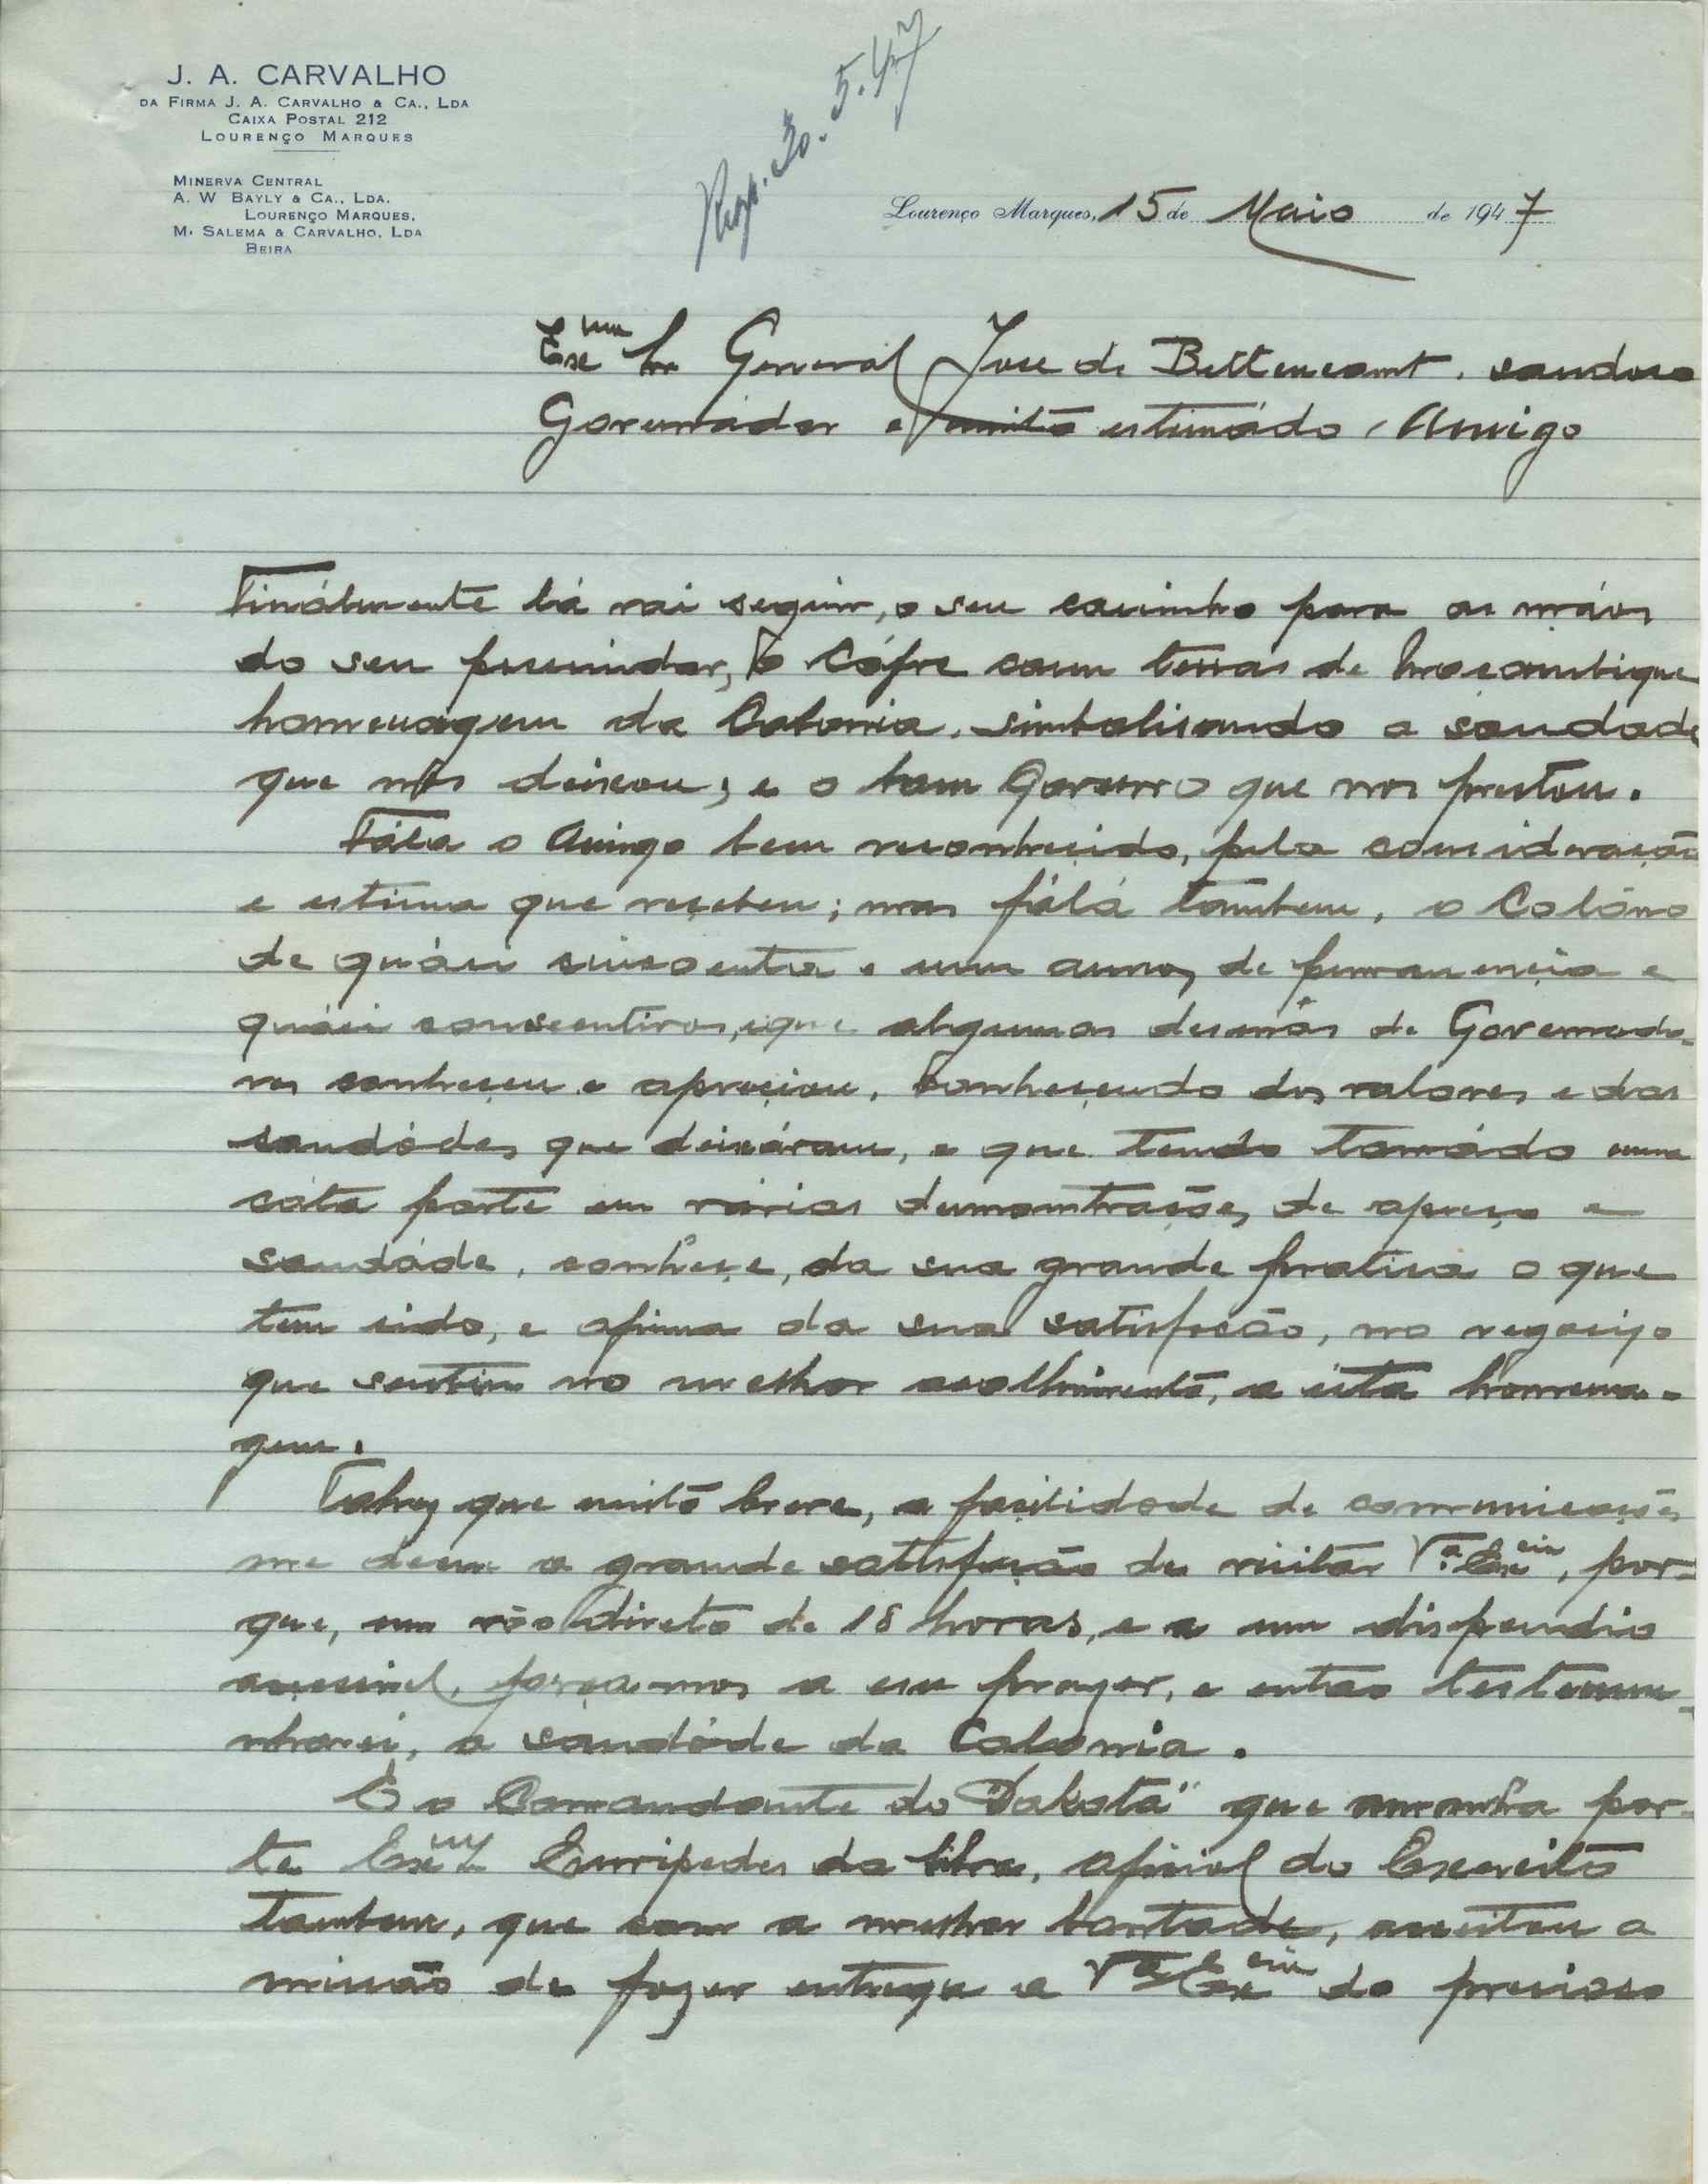 J. A. CARVALHO
DA FIRMA J. A. CARVALHO & CA., LDA
CAIXA POSTAL 212
LOURENÇO MARQUES
MINERVA CENTRAL
A. W BAYLY & CA., LDA.
LOURENÇO MARQUES.
M. SALEMA & CARVALHO. LDA
BEIRA
Resp. 30. 5. 47
Lourenço Marques, 15 de Maio de 1947
Exmo Snr General José de Bettencourt, saudoso
Governádor e muito estimádo Amigo
Finálmente lá vai seguir, o seu carinho para as mãos
do seu possuidor, o Cófre com terras de Moçambique
homenagem da Colonia, simbolisando a saudade
que nos deixou; e o bom Governo que nos prestou.
Fála o Amigo bem reconhecido, pela consideração
e estima que recebeu; mas fálá tambem, o Colóno
de quási cincoenta e um annos de permanencia e
quási consecutivos, que algumas desenas de Governado-
res conheceu e apreciou, conhecendo dos valores e das
saudádes que deixáram, e que tendo tomádo uma
cóta parte em várias demonstrações de apreço e
saudáde, conhece, da sua grande pratica o que
tem sido, e afirma da sua satisfação, no regosijo
que sentiu no melhor acolhimento, a esta homena-
gem.
Talvez que muito breve, a facilidade de comunicações
me deem a grande satisfação de visitar Va. Excia, por-
que, um vôo direto de 18 horas, e a um dispendio
acessivel, forçamos a esse prazer, e então testemu-
nharei, a saudáde da Colonia.
É o Comandante do "Dakota" que amanhã par-
te Exmo Snr Euripedes da Silva, oficial do Exercito
tambem, que com a melhor bontade, aceitou a
missão de fazer entrega a Va Excia do precioso